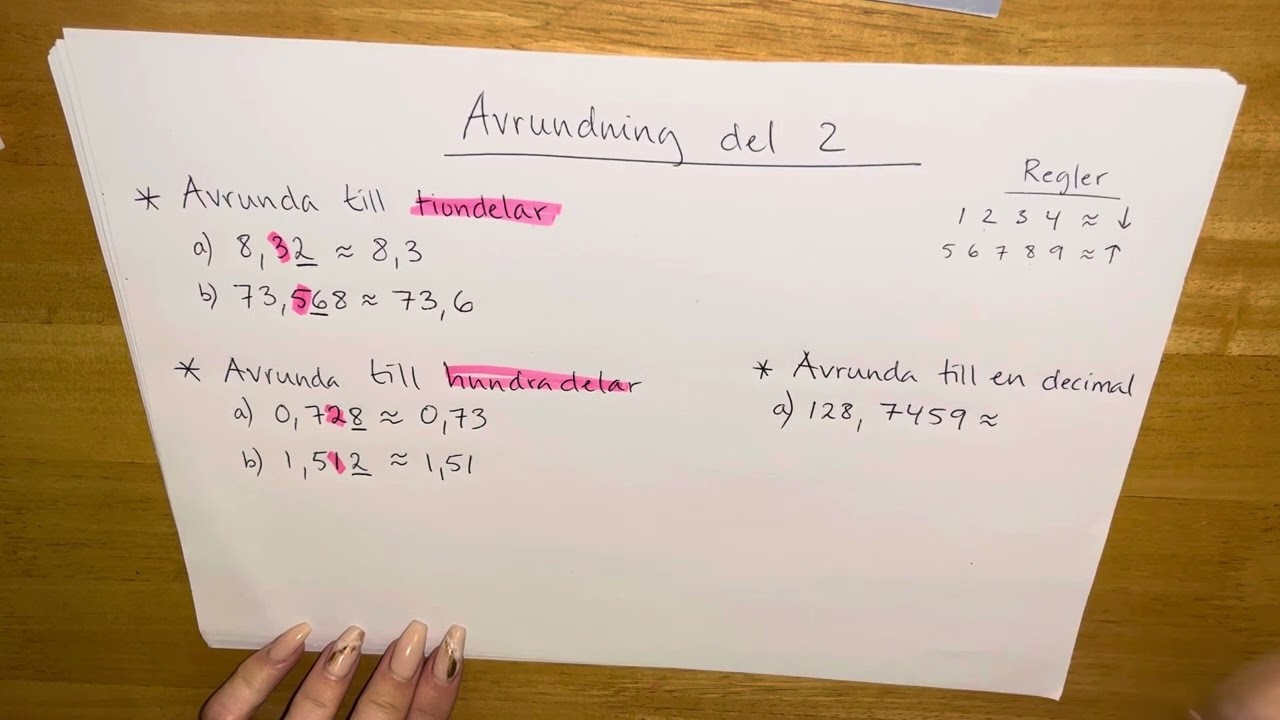 Avrundning del 2
* Avrunda till tiondelar
a) 8,32 ≈ 8,3
b) 73,568 ≈ 73,6
Regler
1 2 3 4 ≈ ↓
5 6 7 8 9 ≈ ↑
* Avrunda till hundradelar
a) 0,728 ≈ 0,73
b) 1,512 ≈ 1,51
* Avrunda till en decimal
a) 128,7459 ≈